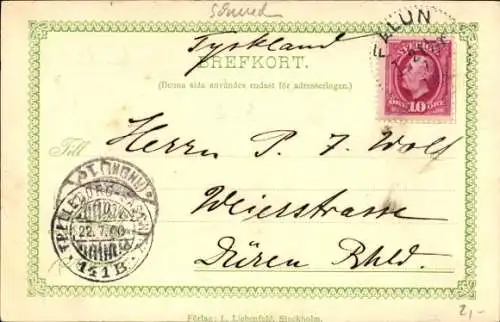 Tyskland
BREFKORT.
(Denna sida användes endast för adresseringen.)
SVERIGE
10
ÖRE ÖRE
Till
Herrn P. J. Wolf
Weierstrasse
Düren Rhld.
22.7.00
141 B.
Förlag: L. Liebenfeld, Stockholm.
2,-